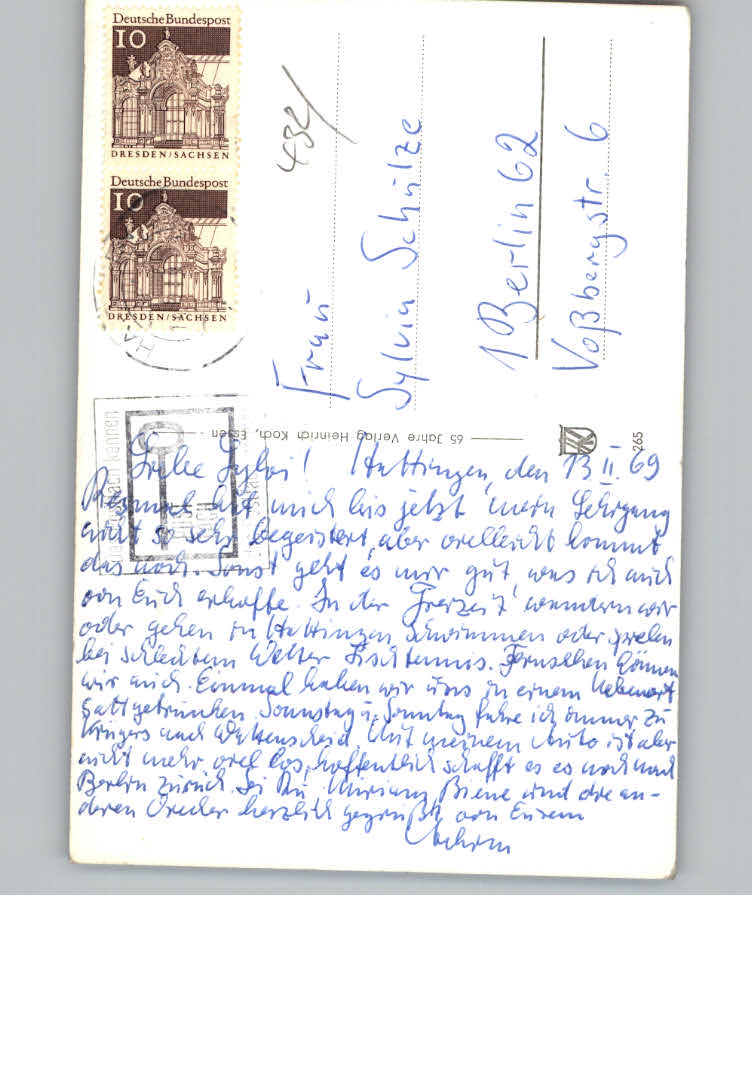 Deutsche Bundespost
10
DRESDEN/SACHSEN
Deutsche Bundespost
10
DRESDEN/SACHSEN
432/
Frau
Sylvia Schulze
1 Berlin 62
Voßbergstr. 6
65 Jahre Verlag Heinrich Koch, Essen
265
Liebe Sylvi! Hattingen, den 13 II. 69
hat mich bis jetzt mein Lehrgang
nicht so sehr begeistert, aber vielleicht kommt
das noch. Sonst geht es mir gut, was ich auch
von Euch erhoffe. In der Freizeit wandern wir
oder gehen in Hattingen schwimmen oder spielen
bei schlechtem Wetter Tischtennis. Fernsehen können
wir auch. Einmal haben wir uns in einem
satt getrunken. Sonnstag u. Sonntag fahre ich immer zu
Krügers nach Wattenscheid. Mit meinem Auto ist aber
nicht mehr viel los, hoffentlich schafft es es noch nach
Berlin zurück. Sei Du, Miriam, Biene und die an-
deren Onecker herzlich gegrüßt von Eurem
Achim